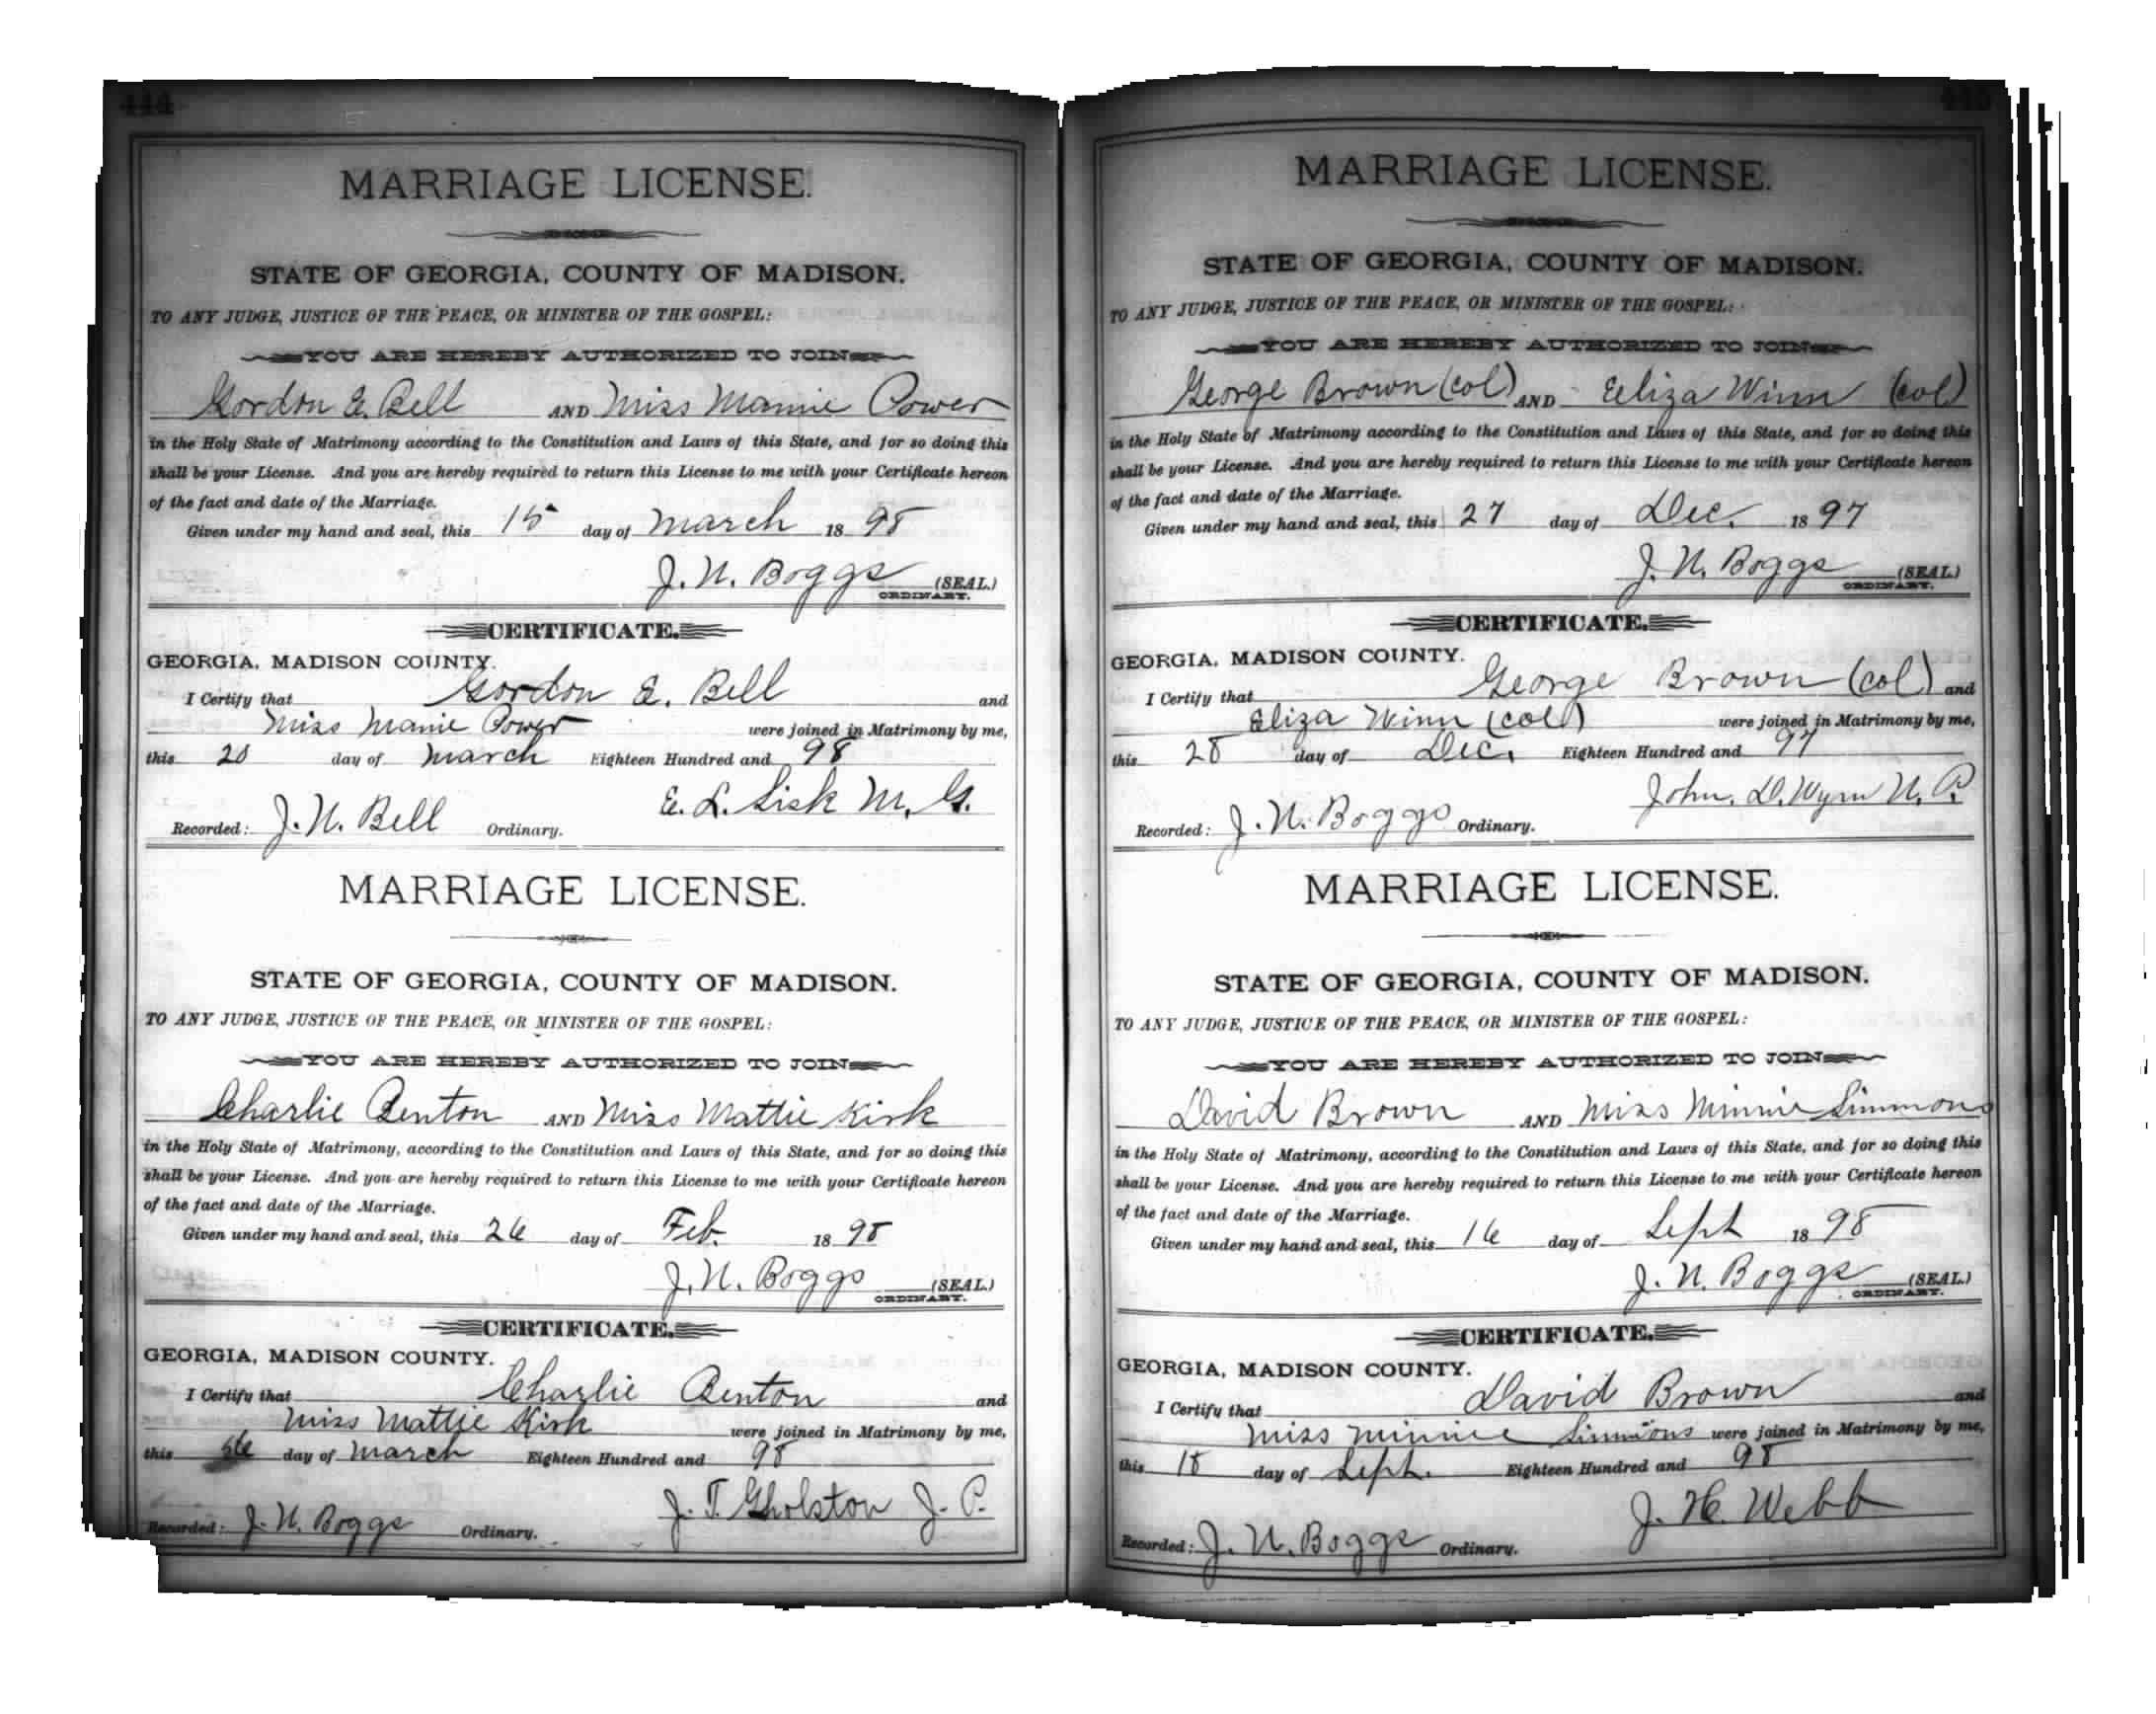 414
MARRIAGE LICENSE.
STATE OF GEORGIA, COUNTY OF MADISON.
TO ANY JUDGE, JUSTICE OF THE PEACE, OR MINISTER OF THE GOSPEL:
YOU ARE HEREBY AUTHORIZED TO JOIN
Gordon E. Bell AND Miss Mamie Power
in the Holy State of Matrimony according to the Constitution and Laws of this State, and for so doing this
shall be your License. And you are hereby required to return this License to me with your Certificate hereon
of the fact and date of the Marriage.
Given under my hand and seal, this 15 day of March 1898
J. N. Boggs (SEAL.)
ORDINARY.
CERTIFICATE.
GEORGIA, MADISON COUNTY.
I Certify that Gordon E. Bell and
Miss Mamie Power were joined in Matrimony by me,
this 20 day of March Eighteen Hundred and 98
E. L. Sisk M. G.
Recorded: J. N. Bell Ordinary.
MARRIAGE LICENSE.
STATE OF GEORGIA, COUNTY OF MADISON.
TO ANY JUDGE, JUSTICE OF THE PEACE, OR MINISTER OF THE GOSPEL:
YOU ARE HEREBY AUTHORIZED TO JOIN
Charlie Benton AND Miss Mattie Kirk
in the Holy State of Matrimony, according to the Constitution and Laws of this State, and for so doing this
shall be your License. And you are hereby required to return this License to me with your Certificate hereon
of the fact and date of the Marriage.
Given under my hand and seal, this 26 day of Feb. 1898
J. N. Boggs (SEAL.)
ORDINARY.
CERTIFICATE.
GEORGIA, MADISON COUNTY.
I Certify that Charlie Benton and
Miss Mattie Kirk were joined in Matrimony by me,
this day of March Eighteen Hundred and 98
J. T. Gholston J. P.
Recorded: J. N. Boggs Ordinary.
415
MARRIAGE LICENSE.
STATE OF GEORGIA, COUNTY OF MADISON.
TO ANY JUDGE, JUSTICE OF THE PEACE, OR MINISTER OF THE GOSPEL:
YOU ARE HEREBY AUTHORIZED TO JOIN
George Brown (col) AND Eeliza Winn (col)
in the Holy State of Matrimony according to the Constitution and Laws of this State, and for so doing this
shall be your License. And you are hereby required to return this License to me with your Certificate hereon
of the fact and date of the Marriage.
Given under my hand and seal, this 27 day of Dec. 1897
J. N. Boggs (SEAL.)
ORDINARY.
CERTIFICATE.
GEORGIA, MADISON COUNTY.
I Certify that George Brown (col) and
Eliza Winn (col) were joined in Matrimony by me,
this 28 day of Dec. Eighteen Hundred and 97
John. D. Wynn N. P.
Recorded: J. N. Boggs Ordinary.
MARRIAGE LICENSE.
STATE OF GEORGIA, COUNTY OF MADISON.
TO ANY JUDGE, JUSTICE OF THE PEACE, OR MINISTER OF THE GOSPEL:
YOU ARE HEREBY AUTHORIZED TO JOIN
David Brown AND Miss Minnie Simmons
in the Holy State of Matrimony, according to the Constitution and Laws of this State, and for so doing this
shall be your License. And you are hereby required to return this License to me with your Certificate hereon
of the fact and date of the Marriage.
Given under my hand and seal, this 16 day of Sept 1898
J. N. Boggs (SEAL.)
ORDINARY.
CERTIFICATE.
GEORGIA, MADISON COUNTY.
I Certify that David Brown and
Miss Minnie Simmons were joined in Matrimony by me,
this 18 day of Sept. Eighteen Hundred and 98
J. H. Webb
Recorded: J. N. Boggs Ordinary.